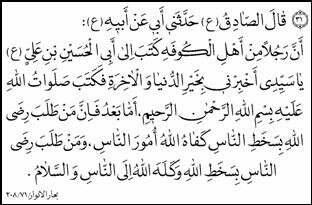 (٣١) قَالَ الصَّادِقُ (ع) حَدَّثَنِي أَبِي عَنْ أَبِيهِ (ع):
أَنَّ رَجُلاً مِنْ أَهْلِ الْكُوفَهِ كَتَبَ إِلَى أَبِي الْحُسَيْنِ بْنِ عَلِيٍّ (ع)
يَا سَيِّدِي أَخْبِرْنِي بِخَيْرِ الدُّنْيَا وَ الْآخِرَةِ فَكَتَبَ صَلَوَاتُ اللهِ
عَلَيْهِ بِسْمِ اللهِ الرَّحْمٰنِ الرَّحِيمِ، أَمَّا بَعْدُ فَإِنَّ مَنْ طَلَبَ رِضَى
اللهِ بِسَخَطِ النَّاسِ كَفَاهُ اللهُ أُمُورَ النَّاسِ، وَمَنْ طَلَبَ رِضَى
النَّاسِ بِسَخَطِ اللهِ وَكَلَهُ اللهُ إِلَى النَّاسِ وَ السَّلَامُ.
بحار الانوار/٧١/٢٠٨